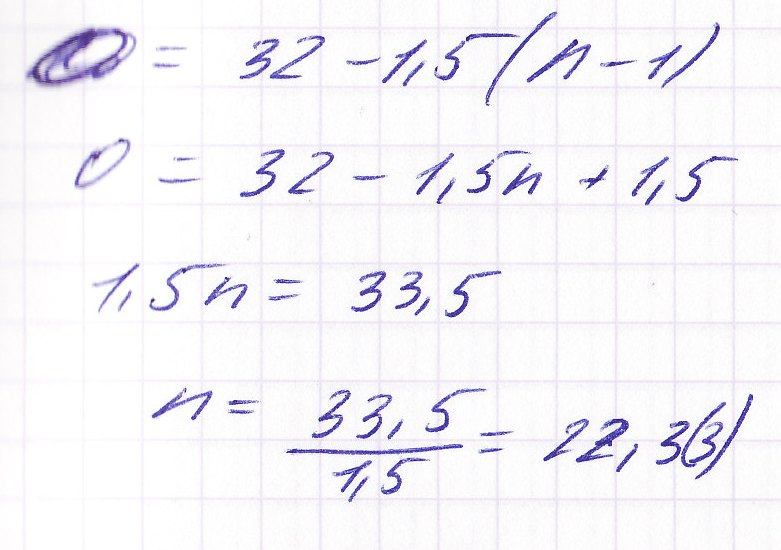 0 = 32 - 1,5(n - 1)
0 = 32 - 1,5n + 1,5
1,5n = 33,5
n = 33,5/1,5 = 22,3(3)